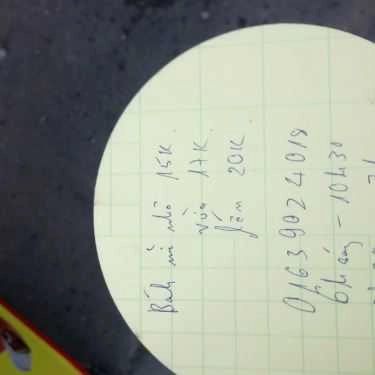 Bánh mì nhỏ 15K.
vừa 17K.
lớn 20K
01639024019
6h sáng - 10h30